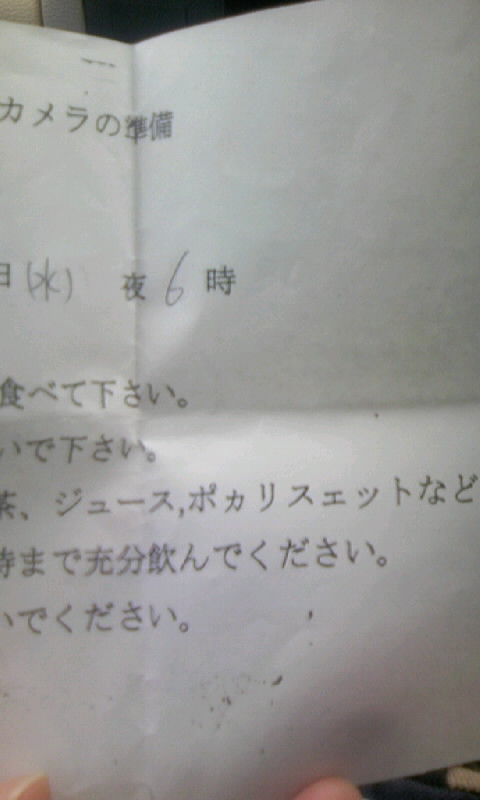 カメラの準備
日(水) 夜6時
食べて下さい。
いで下さい。
茶、ジュース,ポカリスエットなど
時まで充分飲んでください。
いでください。